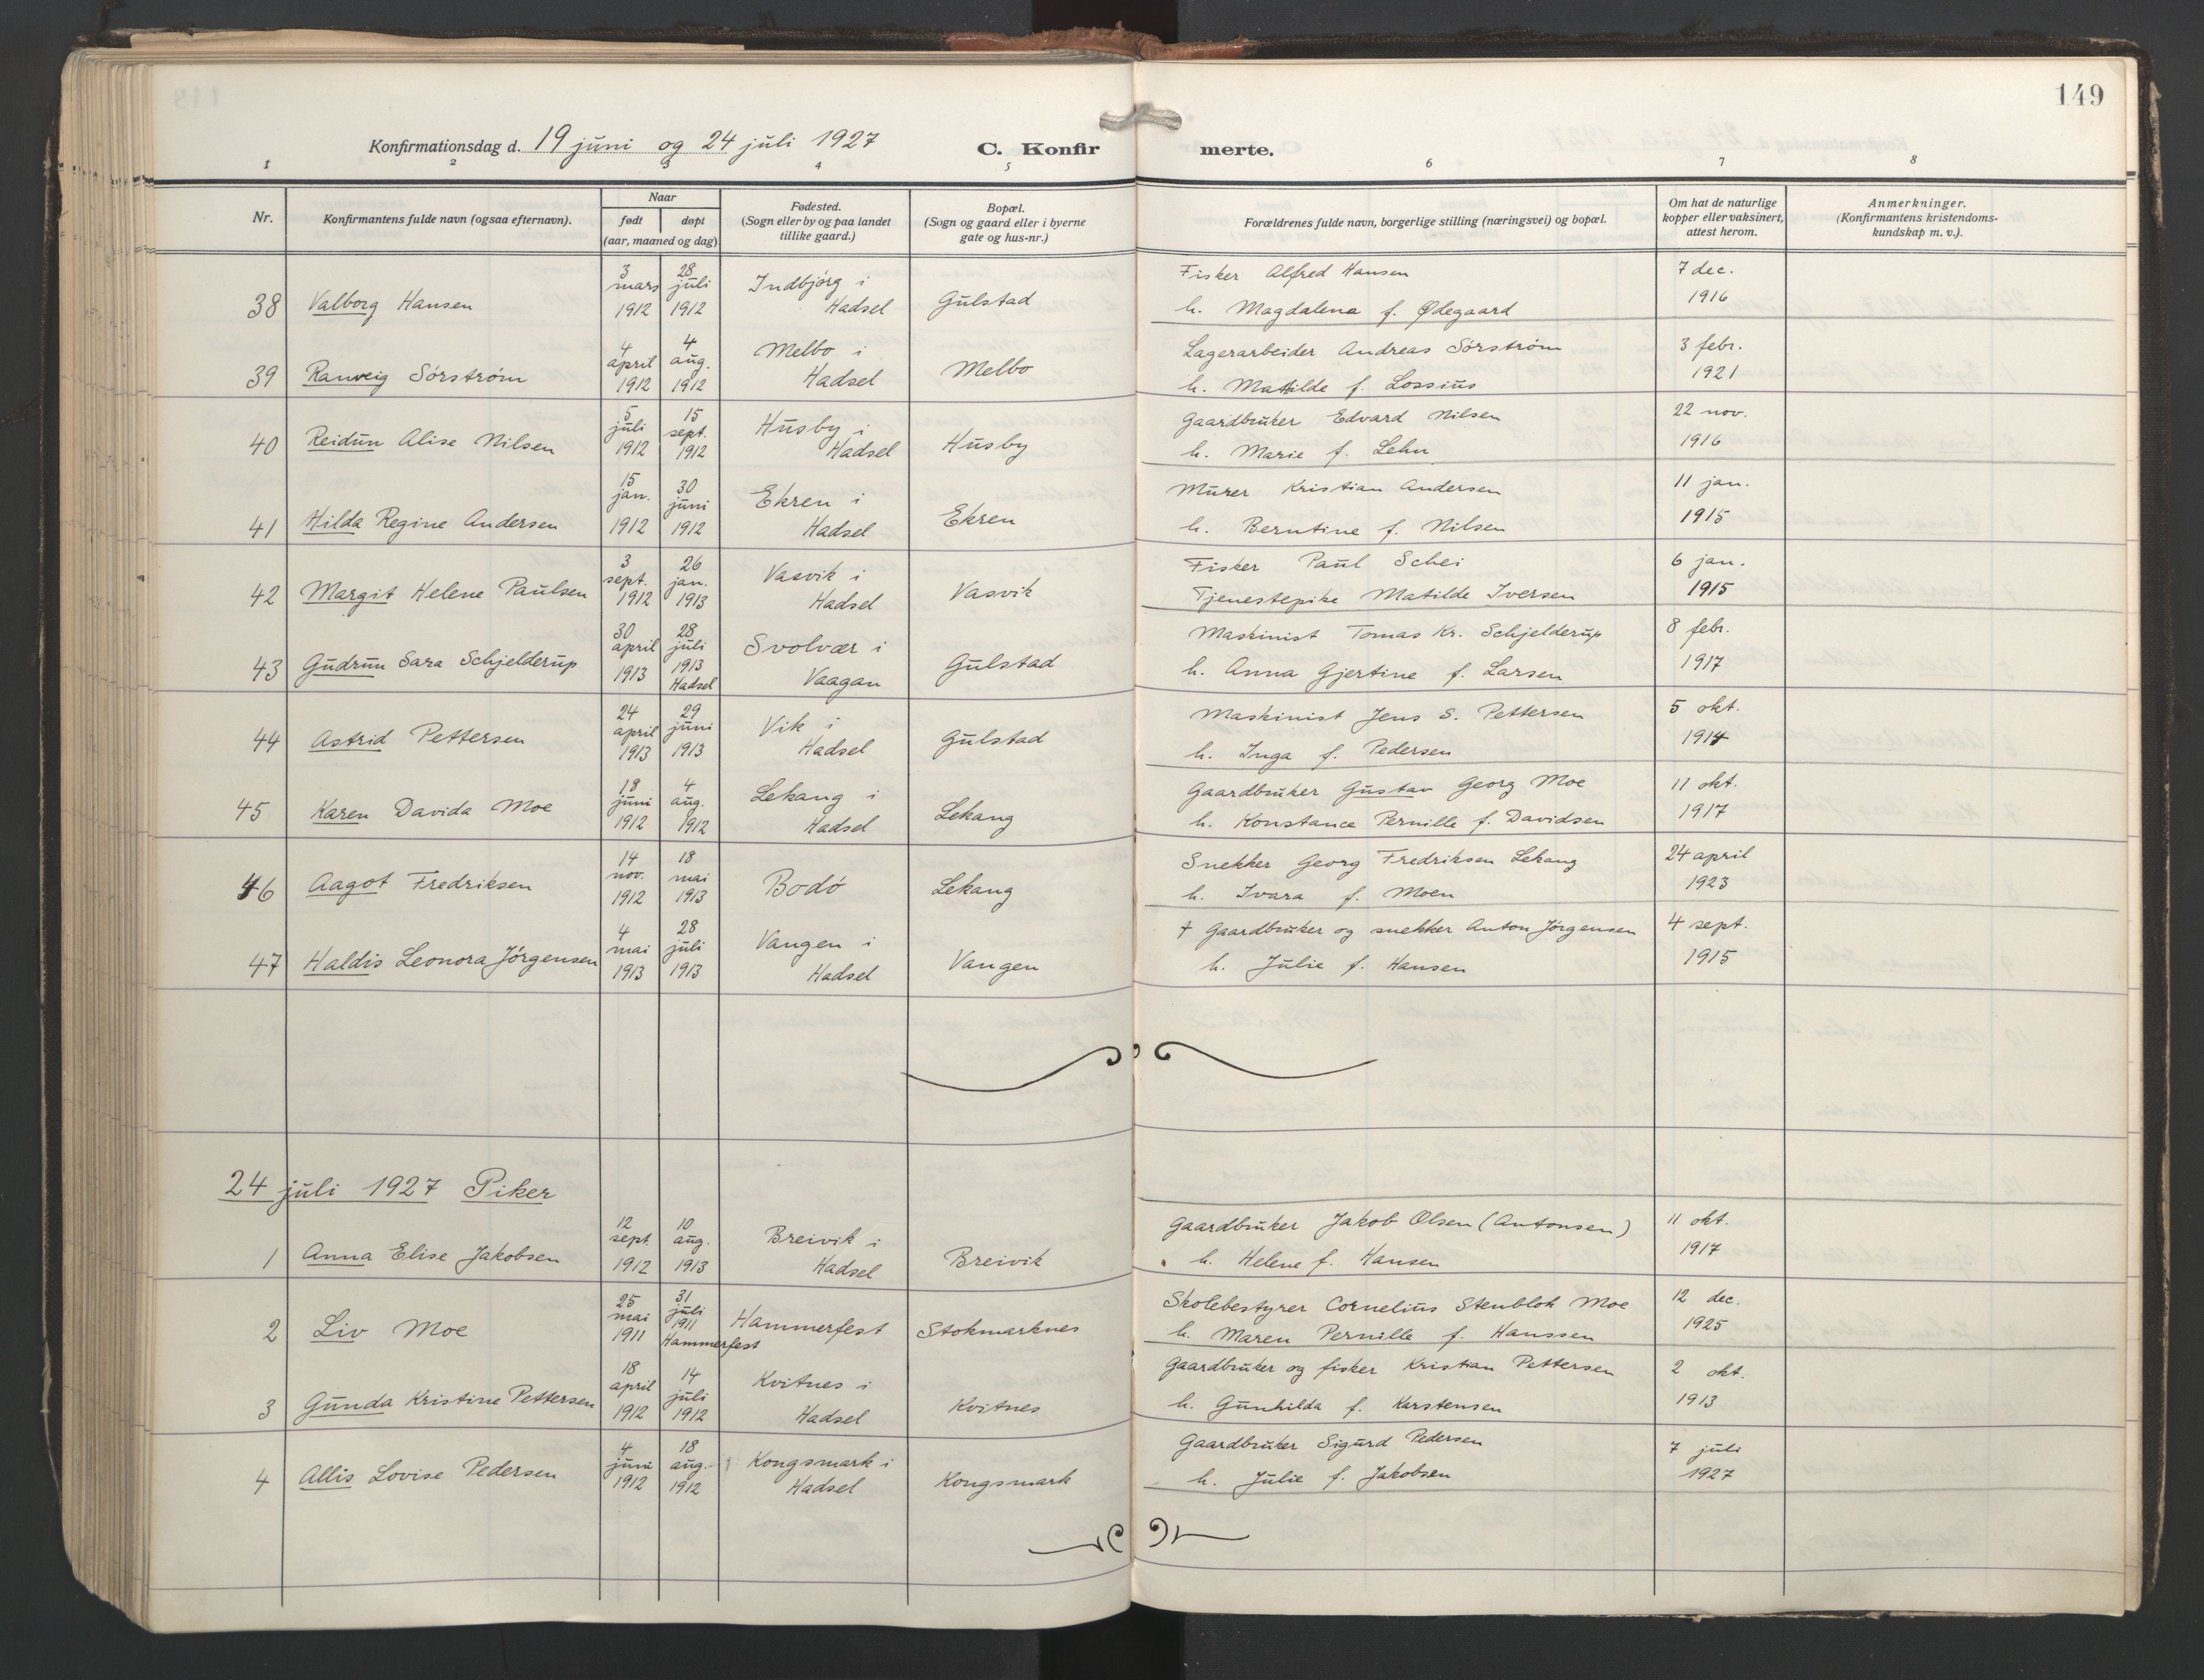 149
Konfirmationsdag d. 19 juni og 24 juli 1927
C. Konfirmerte.
1 2 3 4 5 6 7 8
Nr.
Konfirmantens fulde navn (ogsaa efternavn).
Naar
født
døpt
(aar, maaned og dag)
Fødested.
(Sogn eller by og paa landet
tillike gaard.)
Bopæl.
(Sogn og gaard eller i byerne
gate og hus-nr.)
Forældrenes fulde navn, borgerlige stilling (næringsvei) og bopæl.
Om hat de naturlige
kopper eller vaksinert,
attest herom.
Anmerkninger.
(Konfirmantens kristendoms-
kundskap m. v.).
38 Valborg Hansen
3 mars 1912
28 juli 1912
Indbjörg i
Hadsel
Gulstad
Fisker Alfred Hansen
h. Magdalena f. Ødegaard
7 dec.
1916
39 Ranveig Sörström
4 april 1912
4 aug. 1912
Melbo i
Hadsel
Melbo
Lagerarbeider Andreas Sörström
h. Matilde f. Lossius
3 febr.
1921
40 Reidun Alise Nilsen
5 juli 1912
15 sept. 1912
Husby i
Hadsel
Husby
Gaardbruker Edvard Nilsen
h. Marie f. Lehn
22 nov.
1916
41 Hilda Regine Andersen
15 jan. 1912
30 juni 1912
Ekren i
Hadsel
Ekren
Murer Kristian Andersen
h. Berntine f. Nilsen
11 jan.
1915
42 Margit Helene Paulsen
3 sept. 1912
26 jan. 1913
Vasvik i
Hadsel
Vasvik
Fisker Paul Schei
Tjenestepike Matilde Iversen
6 jan.
1915
43 Gudrun Sara Schjelderup
30 april 1913
28 juli 1913 Hadsel
Svolvær i
Vaagan
Gulstad
Maskinist Tomas Kr. Schjelderup
h. Anna Gjertine f. Larsen
8 febr.
1917
44 Astrid Pettersen
24 april 1913
29 juni 1913
Vik i
Hadsel
Gulstad
Maskinist Jens S. Pettersen
h. Inga f. Pedersen
5 okt.
1914
45 Karen Davida Moe
18 juni 1912
4 aug. 1912
Lekang i
Hadsel
Lekang
Gaardbruker Gustav Georg Moe
h. Konstance Pernille f. Davidsen
11 okt.
1917
46 Aagot Fredriksen
14 nov. 1912
18 mai 1913
Bodö
Lekang
Snekker Georg Fredriksen Lekang
h. Ivara f. Moen
24 april
1923
47 Haldis Leonora Jörgensen
4 mai 1913
28 juli 1913
Vangen i
Hadsel
Vangen
† Gaardbruker og snekker Anton Jörgensen
h. Julie f. Hansen
4 sept.
1915
24 juli 1927 Piker
1 Anna Elise Jakobsen
12 sept. 1912
10 aug. 1913
Breivik i
Hadsel
Breivik
Gaardbruker Jakob Olsen (Antonsen)
h. Helene f. Hansen
11 okt.
1917
2 Liv Moe
25 mai 1911
31 juli 1911 Hammerfest
Hammerfest
Stokmarknes
Skolebestyrer Cornelius Stenblok Moe
h. Maren Pernille f. Hanssen
12 dec.
1925
3 Gunda Kristine Pettersen
18 april 1912
14 juli 1912
Kvitnes i
Hadsel
Kvitnes
Gaardbruker og fisker Kristian Pettersen
h. Gunhilda f. Karstensen
2 okt.
1913
4 Allis Lovise Pedersen
4 juni 1912
18 aug. 1912
Kongsmark i
Hadsel
Kongsmark
Gaardbruker Sigurd Pedersen
h. Julie f. Jakobsen
7 juli
1927